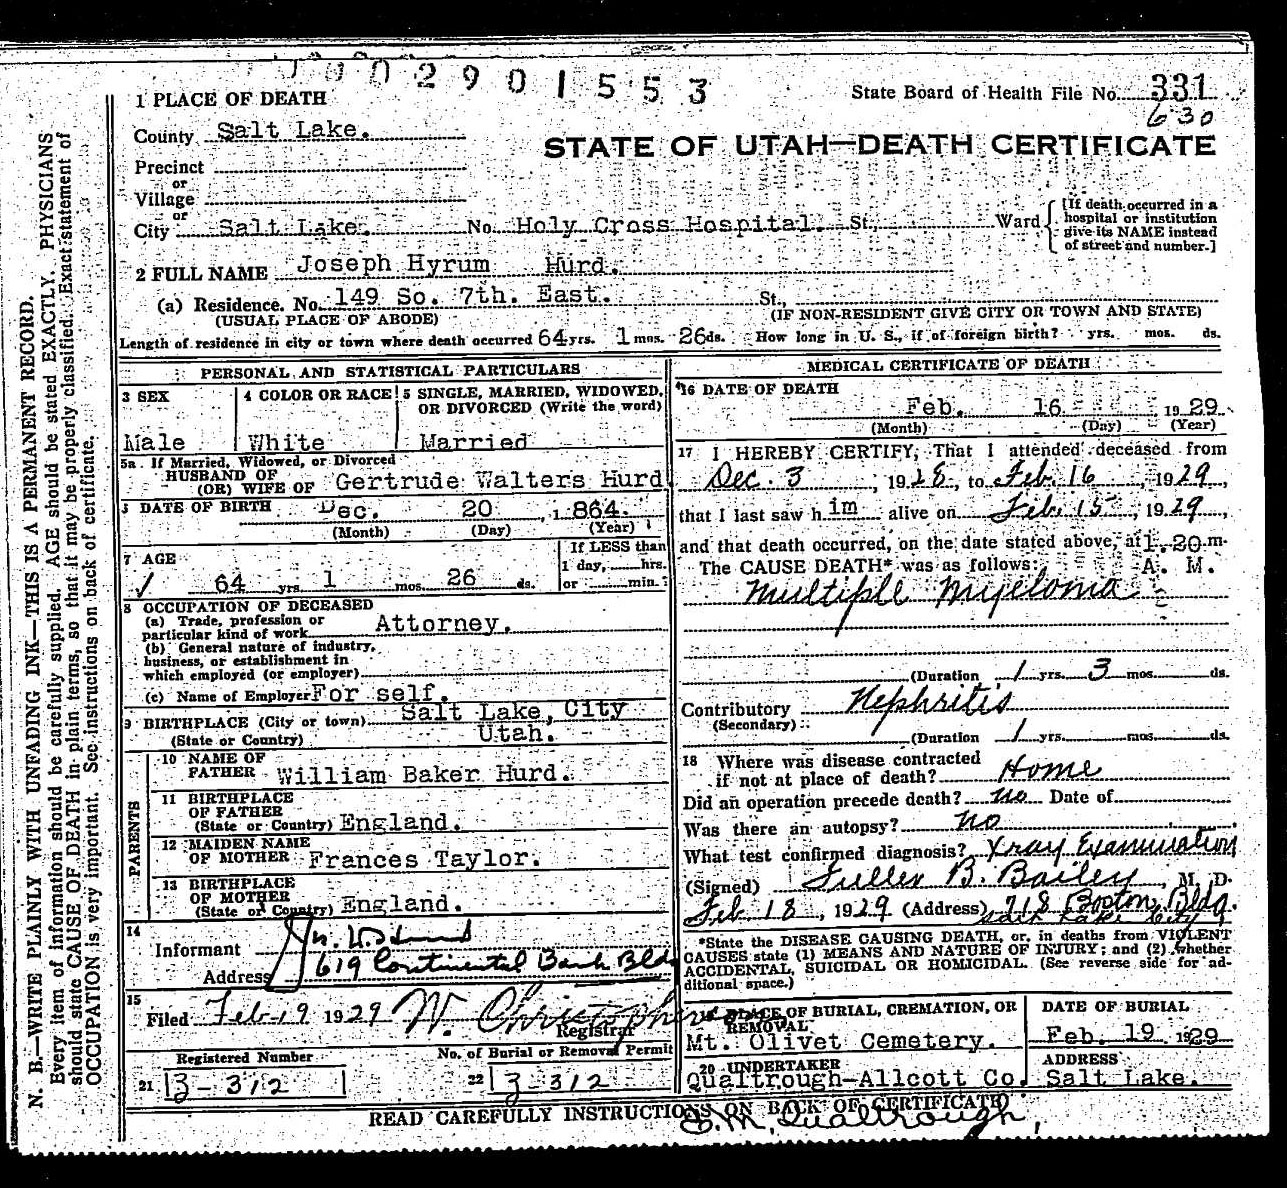 1002901553
State Board of Health File No. 331
630
STATE OF UTAH—DEATH CERTIFICATE
1 PLACE OF DEATH
County Salt Lake.
Precinct
or
Village
or
City Salt Lake. No. Holy Cross Hospital. St., Ward
[If death occurred in a
hospital or institution
give its NAME instead
of street and number.]
2 FULL NAME Joseph Hyrum Hurd.
(a) Residence. No. 149 So. 7th. East. St.,
(USUAL PLACE OF ABODE) (IF NON-RESIDENT GIVE CITY OR TOWN AND STATE)
Length of residence in city or town where death occurred 64 yrs. 1 mos. 26 ds. How long in U. S., if of foreign birth? yrs. mos. ds.
PERSONAL AND STATISTICAL PARTICULARS
3 SEX
Male
4 COLOR OR RACE
White
5 SINGLE, MARRIED, WIDOWED,
OR DIVORCED (Write the word)
Married
5a If Married, Widowed, or Divorced
HUSBAND OF
(OR) WIFE OF Gertrude Walters Hurd
DATE OF BIRTH Dec. 20 1864.
(Month) (Day) (Year)
7 AGE
64 yrs 1 mos. 26 ds.
If LESS than
1 day, hrs.
or min.
8 OCCUPATION OF DECEASED
(a) Trade, profession or
particular kind of work Attorney.
(b) General nature of industry,
business, or establishment in
which employed (or employer)
(c) Name of Employer For self.
9 BIRTHPLACE (City or town) Salt Lake, City
(State or Country) Utah.
PARENTS
10 NAME OF
FATHER William Baker Hurd.
11 BIRTHPLACE
OF FATHER
(State or Country) England.
12 MAIDEN NAME
OF MOTHER Frances Taylor.
13 BIRTHPLACE
OF MOTHER
(State or Country) England.
14
Informant
Address 619 Continental Bank Bldg
15
Filed Feb 19 1929 W. Christopherson
Registrar
Registered Number
21 B-312
No. of Burial or Removal Permit
22 B-312
MEDICAL CERTIFICATE OF DEATH
16 DATE OF DEATH
Feb. 16 1929
(Month) (Day) (Year)
17 I HEREBY CERTIFY, That I attended deceased from
Dec. 3, 1928, to Feb. 16, 1929,
that I last saw him alive on Feb. 15, 1929,
and that death occurred, on the date stated above, at 1.20 m.
The CAUSE DEATH* was as follows: A. M.
Multiple Myeloma
(Duration 1 yrs. 3 mos. ds.
Contributory Nephritis
(Secondary)
(Duration 1 yrs. mos. ds.
18 Where was disease contracted
if not at place of death? Home
Did an operation precede death? no Date of
Was there an autopsy? no
What test confirmed diagnosis? Xray Examination
(Signed) Fuller B. Bailey, M. D.
Feb 18, 1929 (Address) 718 Boston Bldg.
Salt Lake City
*State the DISEASE CAUSING DEATH, or, in deaths from VIOLENT
CAUSES state (1) MEANS AND NATURE OF INJURY; and (2) whether
ACCIDENTAL, SUICIDAL OR HOMICIDAL. (See reverse side for ad-
ditional space.)
PLACE OF BURIAL, CREMATION, OR
REMOVAL
Mt. Olivet Cemetery.
DATE OF BURIAL
Feb. 19 1929
20 UNDERTAKER
Qualtrough-Allcott Co.
ADDRESS
Salt Lake.
READ CAREFULLY INSTRUCTIONS ON BACK OF CERTIFICATE
D. M. Qualtrough,
N. B.—WRITE PLAINLY WITH UNFADING INK—THIS IS A PERMANENT RECORD.
Every item of information should be carefully supplied. AGE should be stated EXACTLY. PHYSICIANS
should state CAUSE OF DEATH in plain terms, so that it may be properly classified. Exact statement of
OCCUPATION is very important. See instructions on back of certificate.